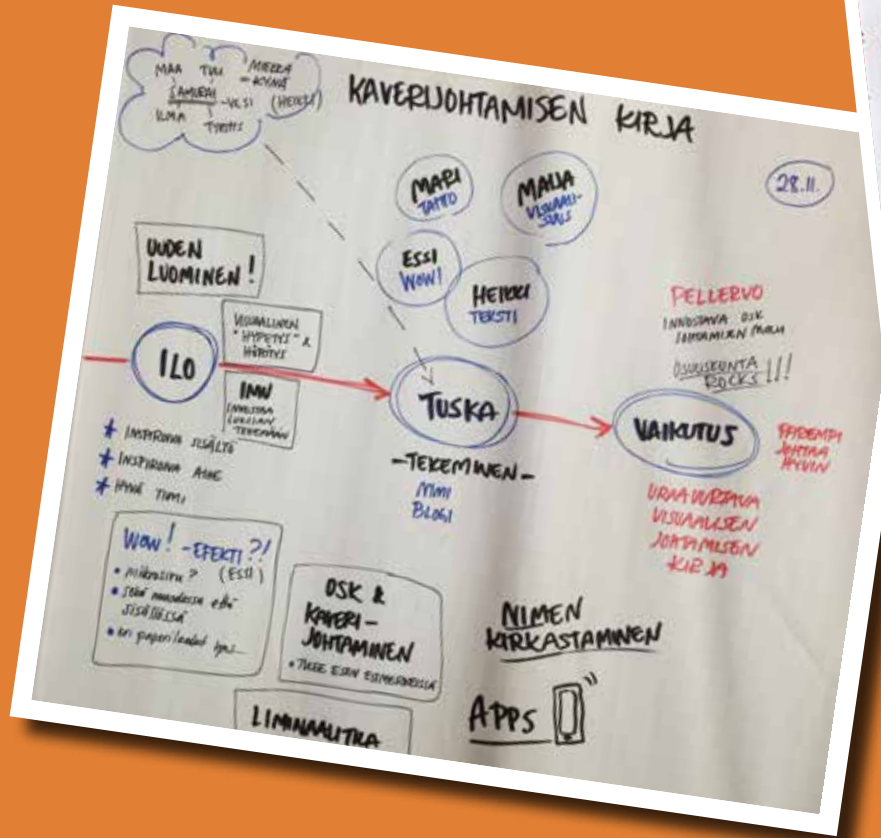 MAA TUU MIEKKA
= KYNÄ
SAMURAI -VESI (HEIKKI)
ILMA
KAVERIJOHTAMISEN KIRJA
28.11.
MARI
TAITO
MAIJA
VISUAALI-
SUUS
ESSI
WOW!
HEIKKI
TEKSTI
UUDEN
LUOMINEN!
VISUAALINEN
"HYPETYS" &
ILO
IMU
INNOSTAA
LUKIJAN
TEKEMÄÄN
* INSPIROIVA SISÄLTÖ
* INSPIROIVA AIHE
* HYVÄ TIIMI
TUSKA
-TEKEMINEN-
NIMI
BLOGI
PELLERVO
INNOSTAVA OSK
JOHTAMISEN MALLI
OSUUSKUNTA
ROCKS!!!
VAIKUTUS
PAREMPI
JOHTAA
HYVIN
URAAUURTAVA
VISUAALISEN
JOHTAMISEN
KIRJA
WOW! -EFEKTI?!
• MIKROSIRU? (ESSI)
• sekä muodossa että
sisällössä
• eri paperilaadut
OSK &
KAVERI-
JOHTAMINEN
• TULEE ESIIN ESIMERKEISSÄ
LIMINAALITILA
NIMEN
KIRKASTAMINEN
APPS